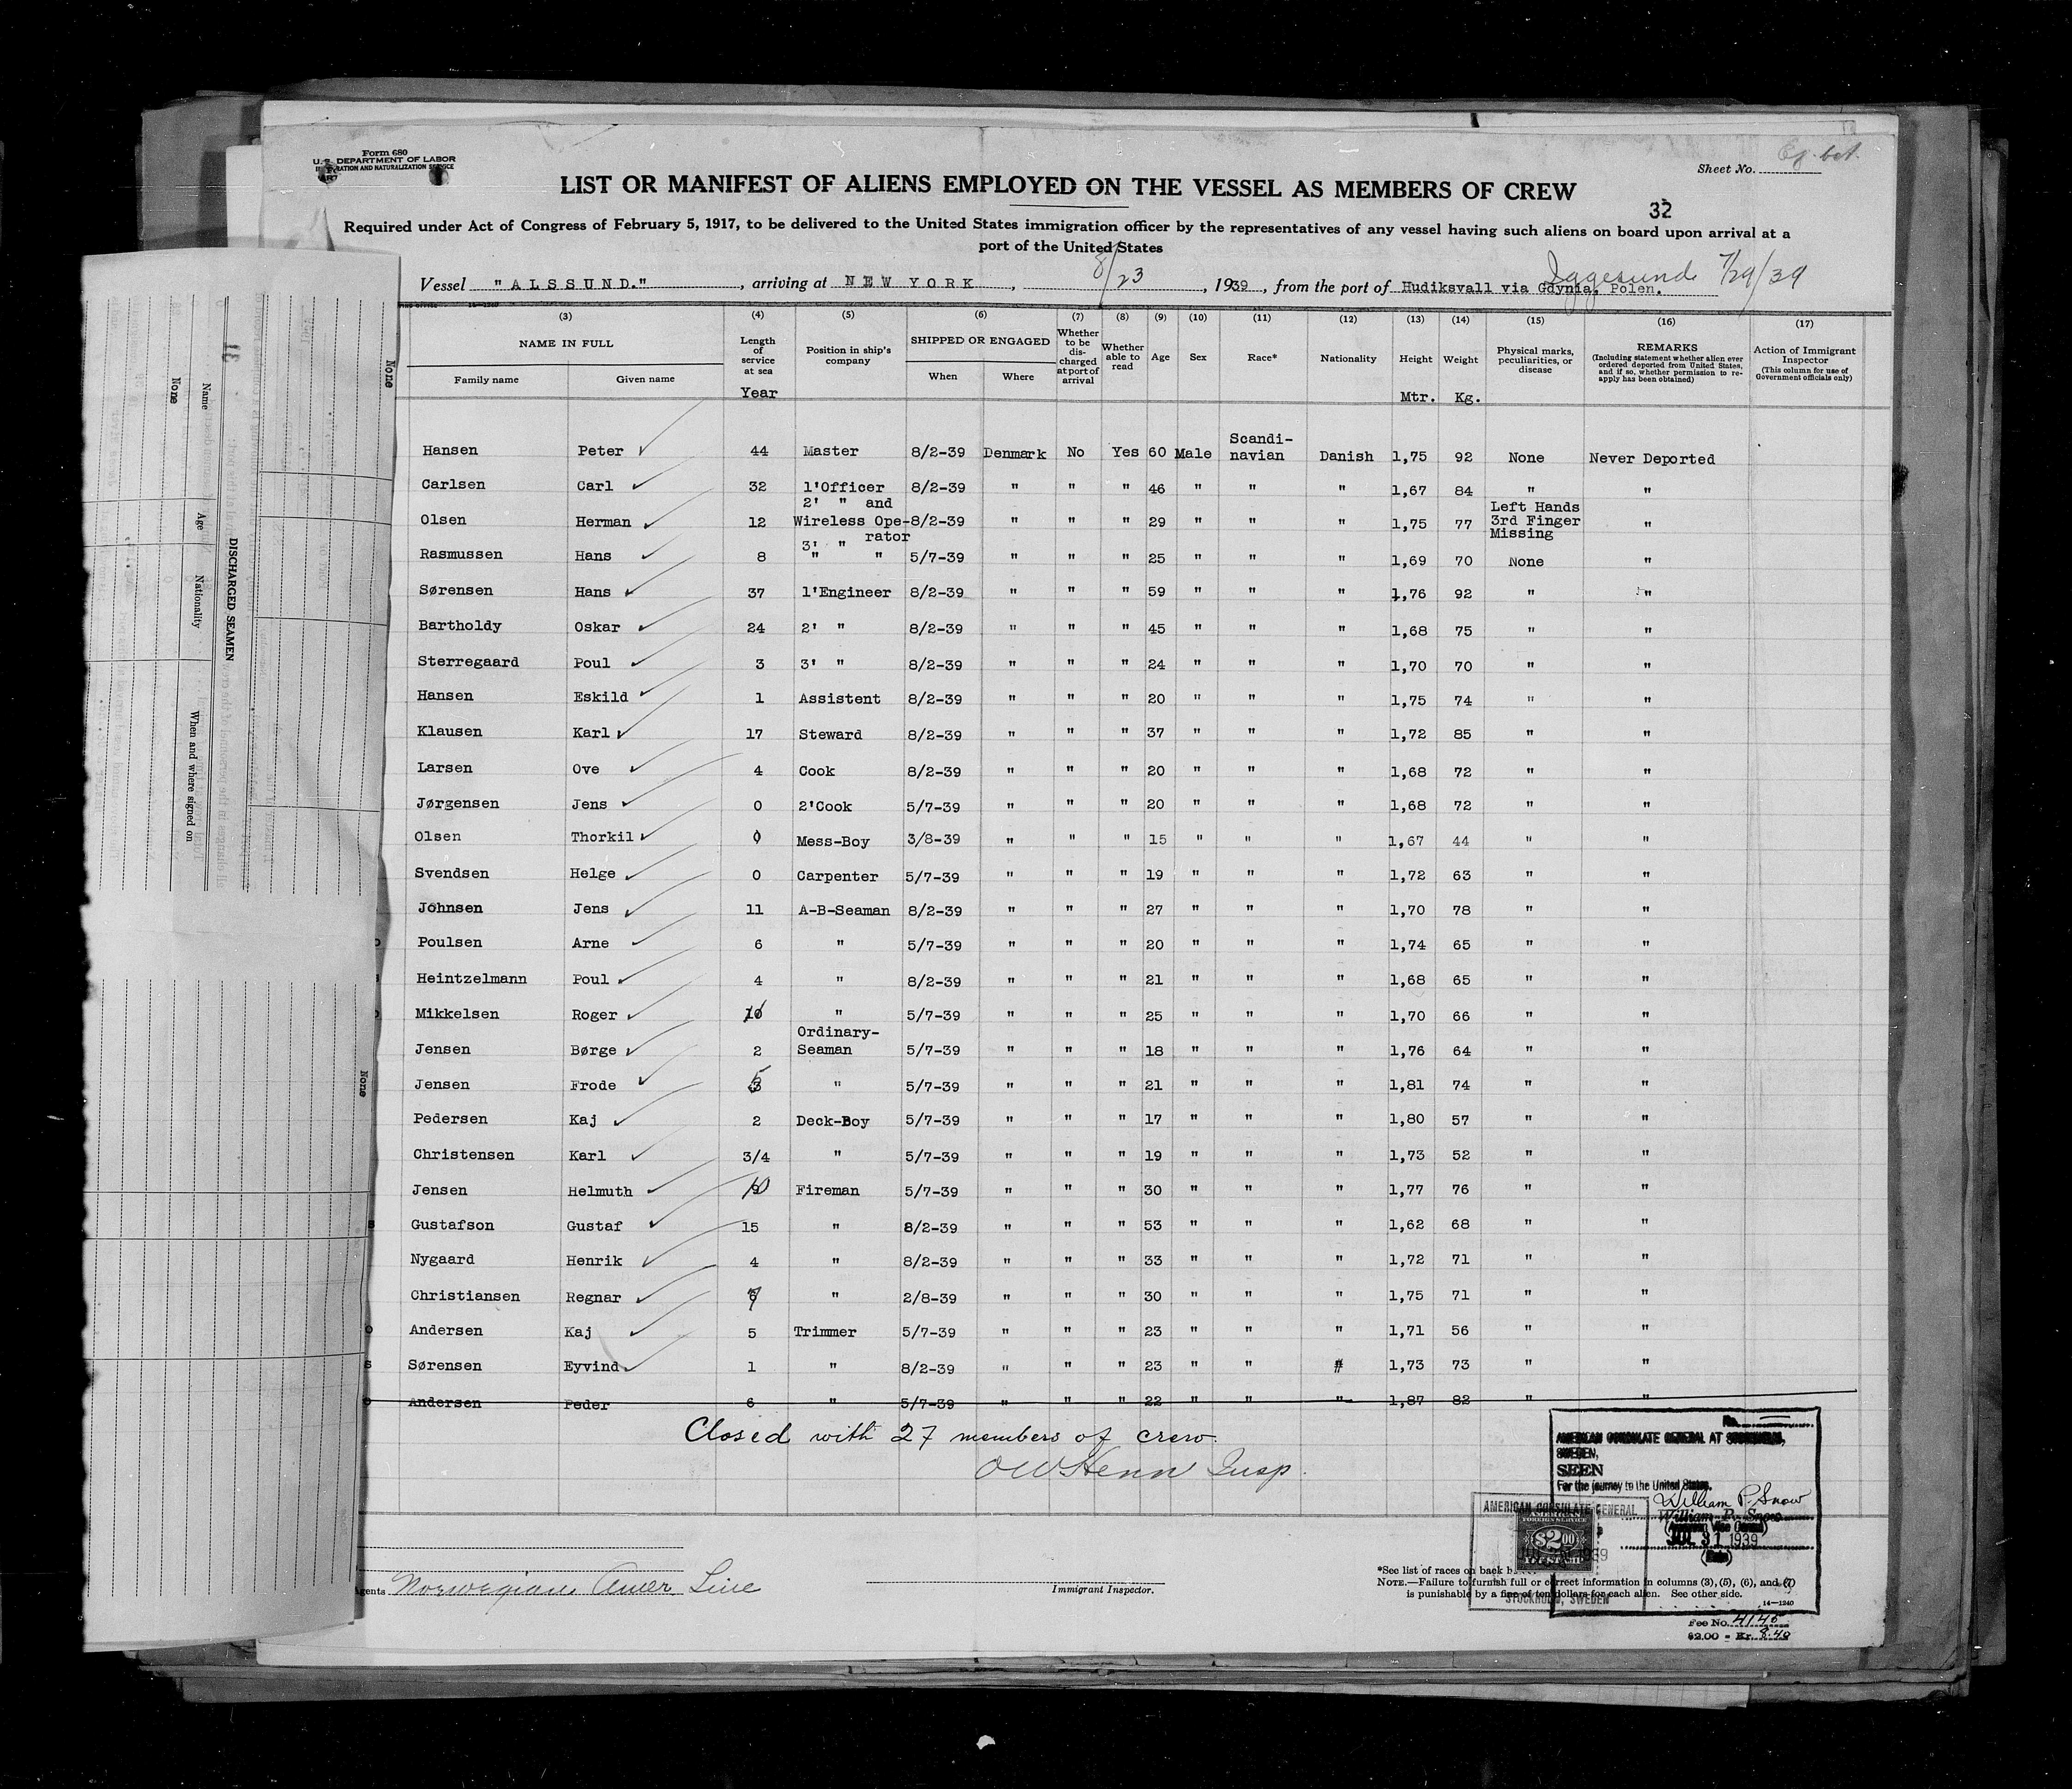 Form 680
U. S. DEPARTMENT OF LABOR
IMMIGRATION AND NATURALIZATION SERVICE
Sheet No.
LIST OR MANIFEST OF ALIENS EMPLOYED ON THE VESSEL AS MEMBERS OF CREW
32
Required under Act of Congress of February 5, 1917, to be delivered to the United States immigration officer by the representatives of any vessel having such aliens on board upon arrival at a
port of the United States
Vessel "ALSSUND." , arriving at NEW YORK , 8/23 , 1939 , from the port of Hudiksvall via Gdynia, Polen. Iggesund 7/29/39
(3) (4) (5) (6) (7) (8) (9) (10) (11) (12) (13) (14) (15) (16) (17)
NAME IN FULL
Family name Given name
Length of service at sea
Year
Position in ship's company
SHIPPED OR ENGAGED
When Where
Whether to be discharged at port of arrival
Whether able to read
Age
Sex
Race*
Nationality
Height
Mtr.
Weight
Kg.
Physical marks, peculiarities, or disease
REMARKS
(Including statement whether alien ever ordered deported from United States, and if so, whether permission to re-apply has been obtained)
Action of Immigrant Inspector
(This column for use of Government officials only)
Hansen Peter 44 Master 8/2-39 Denmark No Yes 60 Male Scandi-navian Danish 1,75 92 None Never Deported
Carlsen Carl 32 1'Officer 8/2-39 " " " 46 " " " 1,67 84 " "
Olsen Herman 12 2' " and Wireless Ope-rator 8/2-39 " " " 29 " " " 1,75 77 Left Hands 3rd Finger Missing "
Rasmussen Hans 8 3' " " " 5/7-39 " " " 25 " " " 1,69 70 None "
Sørensen Hans 37 1'Engineer 8/2-39 " " " 59 " " " 1,76 92 " "
Bartholdy Oskar 24 2' " 8/2-39 " " " 45 " " " 1,68 75 " "
Sterregaard Poul 3 3' " 8/2-39 " " " 24 " " " 1,70 70 " "
Hansen Eskild 1 Assistent 8/2-39 " " " 20 " " " 1,75 74 " "
Klausen Karl 17 Steward 8/2-39 " " " 37 " " " 1,72 85 " "
Larsen Ove 4 Cook 8/2-39 " " " 20 " " " 1,68 72 " "
Jørgensen Jens 0 2'Cook 5/7-39 " " " 20 " " " 1,68 72 " "
Olsen Thorkil 0 Mess-Boy 3/8-39 " " " 15 " " " 1,67 44 " "
Svendsen Helge 0 Carpenter 5/7-39 " " " 19 " " " 1,72 63 " "
Johnsen Jens 11 A-B-Seaman 8/2-39 " " " 27 " " " 1,70 78 " "
Poulsen Arne 6 " 5/7-39 " " " 20 " " " 1,74 65 " "
Heintzelmann Poul 4 " 8/2-39 " " " 21 " " " 1,68 65 " "
Mikkelsen Roger 10 " 5/7-39 " " " 25 " " " 1,70 66 " "
Jensen Børge 2 Ordinary-Seaman 5/7-39 " " " 18 " " " 1,76 64 " "
Jensen Frode 5 " 5/7-39 " " " 21 " " " 1,81 74 " "
Pedersen Kaj 2 Deck-Boy 5/7-39 " " " 17 " " " 1,80 57 " "
Christensen Karl 3/4 " 5/7-39 " " " 19 " " " 1,73 52 " "
Jensen Helmuth 10 Fireman 5/7-39 " " " 30 " " " 1,77 76 " "
Gustafson Gustaf 15 " 8/2-39 " " " 53 " " " 1,62 68 " "
Nygaard Henrik 4 " 8/2-39 " " " 33 " " " 1,72 71 " "
Christiansen Regnar 7 " 2/8-39 " " " 30 " " " 1,75 71 " "
Andersen Kaj 5 Trimmer 5/7-39 " " " 23 " " " 1,71 56 " "
Sørensen Eyvind 1 " 8/2-39 " " " 23 " " " 1,73 73 " "
Andersen Peder 6 " 5/7-39 " " " 22 " " " 1,87 82 " "
Closed with 27 members of crew.
Insp.
No.
AMERICAN CONSULATE GENERAL AT STOCKHOLM,
SWEDEN,
SEEN
For the journey to the United States.
William P. Snow
William P. Snow
(American Vice Consul)
JUL 31 1939
(Date)
AMERICAN CONSULATE GENERAL
AMERICAN
FOREIGN SERVICE
$2.00
FEE STAMP
STOCKHOLM, SWEDEN
Agents Norwegian Amer Line
Immigrant Inspector.
*See list of races on back
NOTE.—Failure to furnish full or correct information in columns (3), (5), (6), and (7)
is punishable by a fine of ten dollars for each alien. See other side.
14—1240
Fee No. 4145
$2.00 = Kr. 8.40
31
DISCHARGED SEAMEN
Name Age Nationality When and where signed on
None
None
None